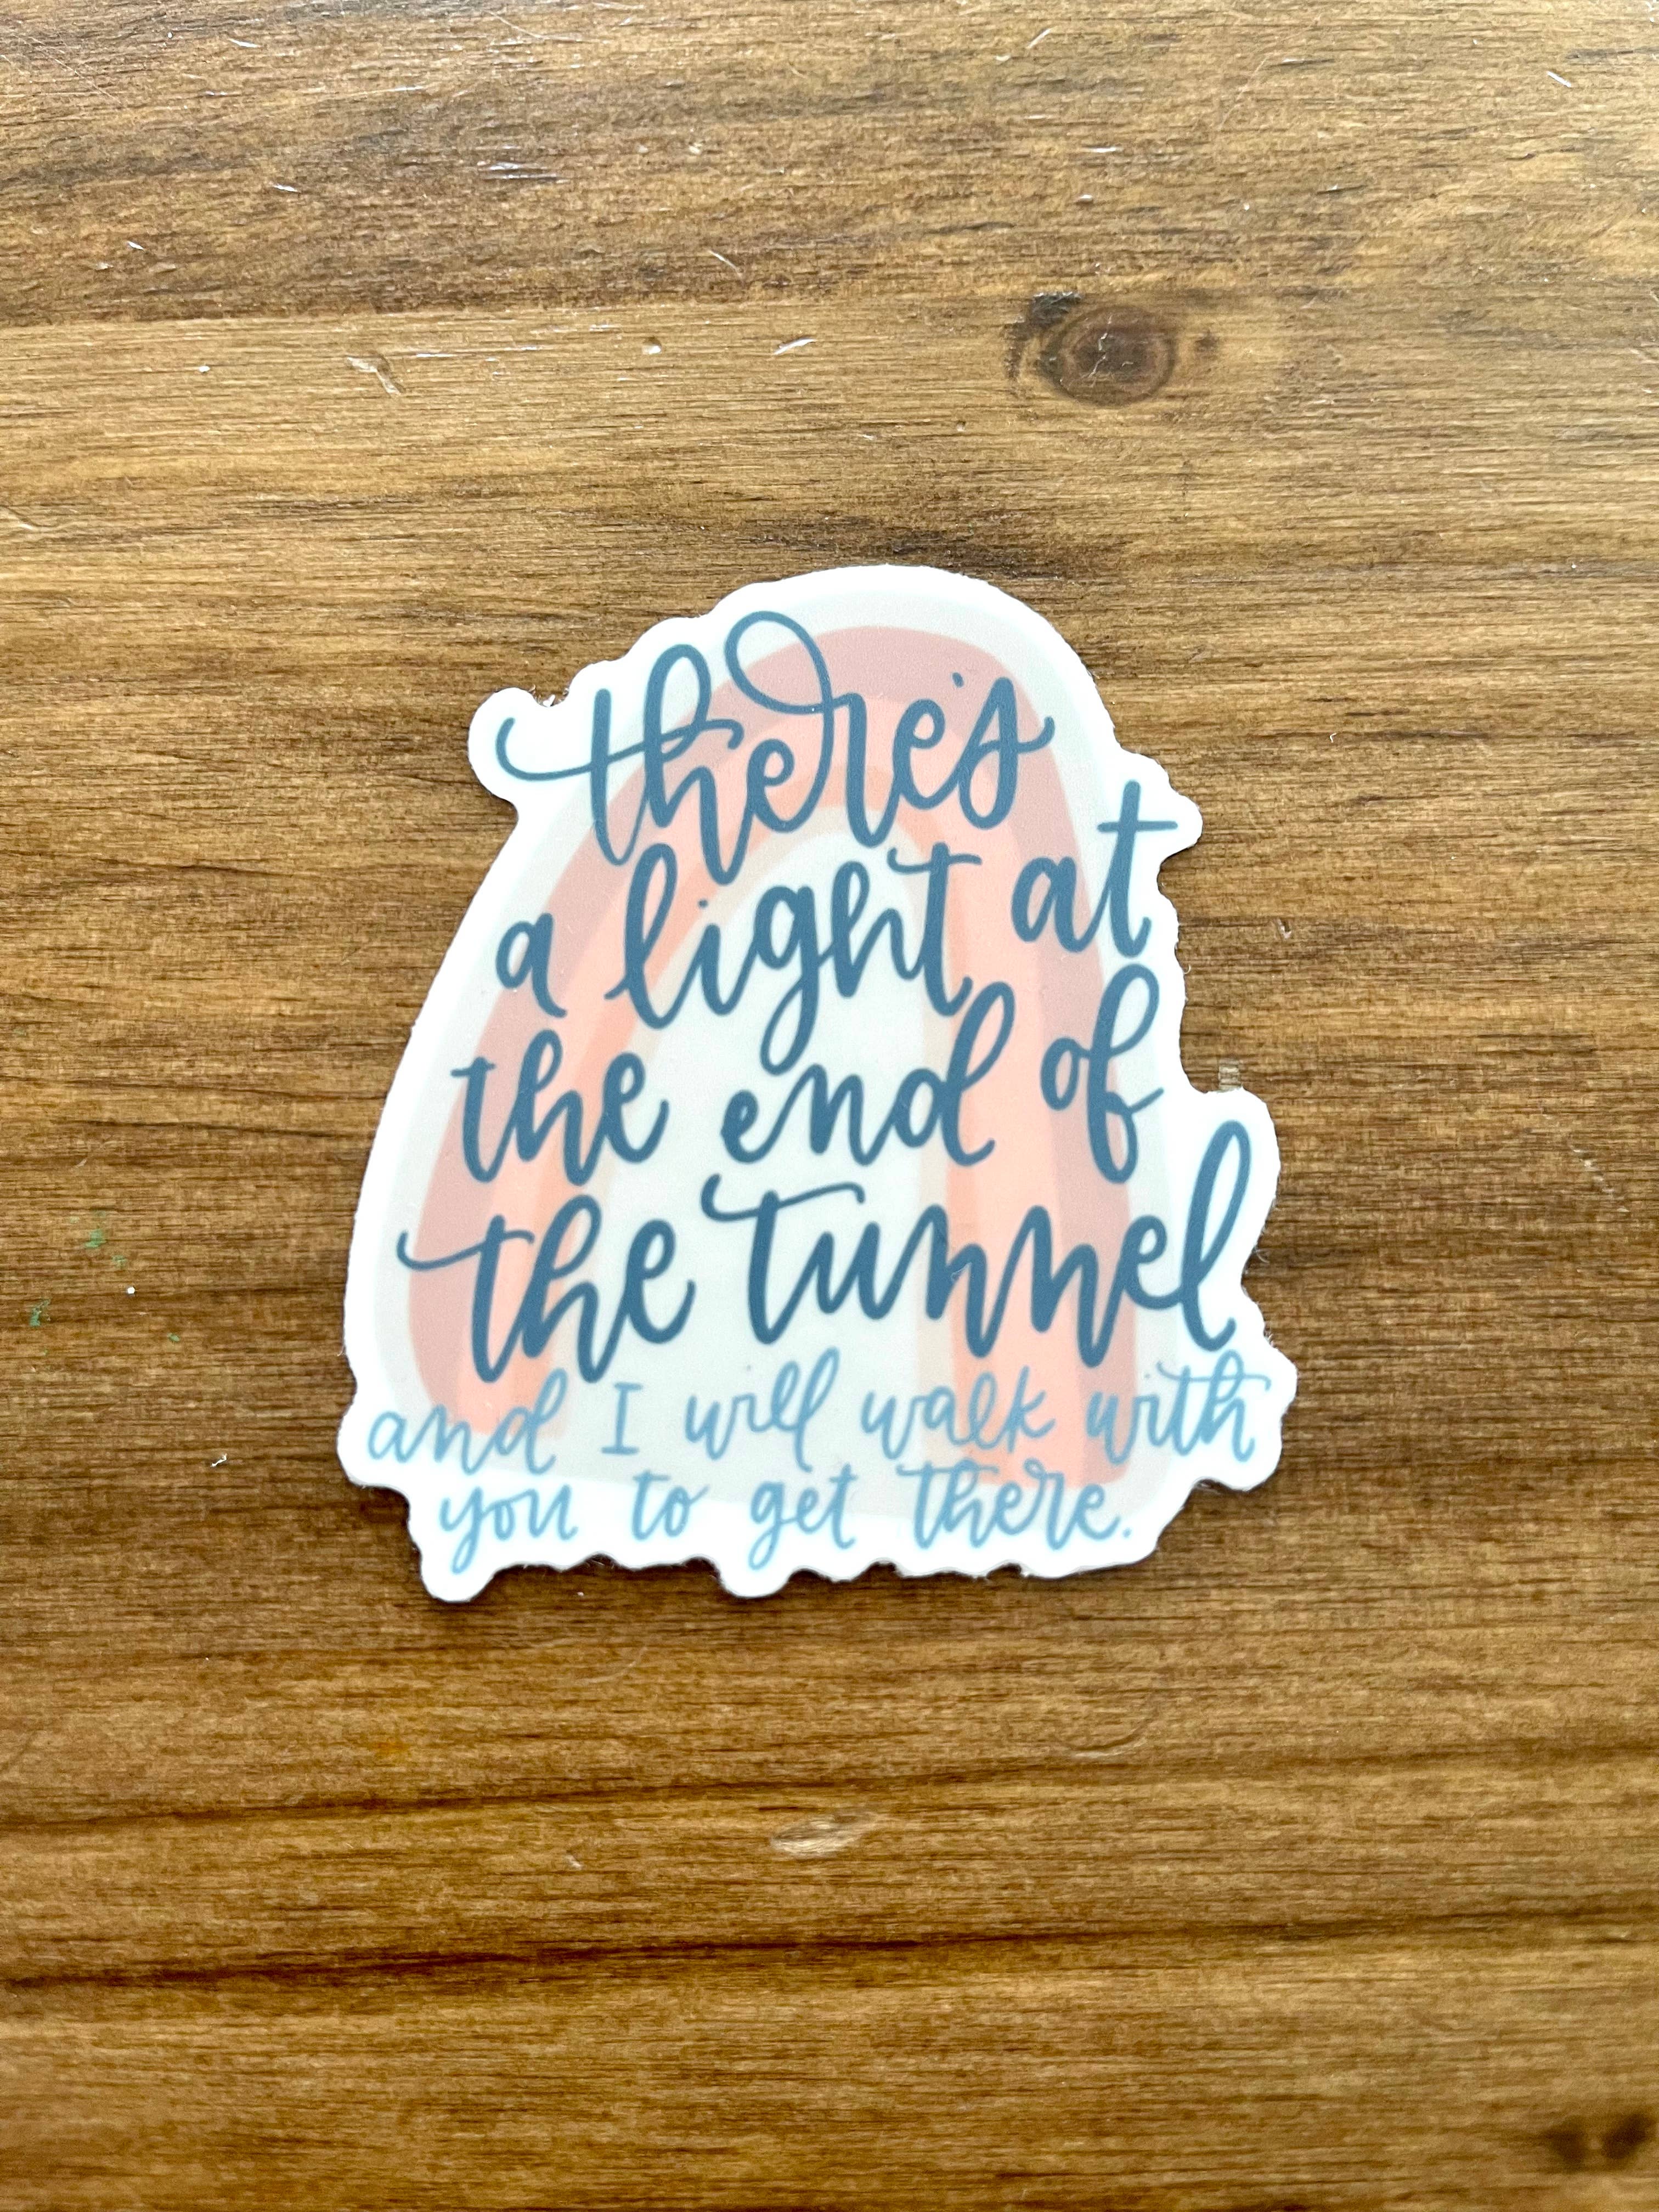 there's
a light at
the end of
the tunnel
and I will walk with
you to get there.